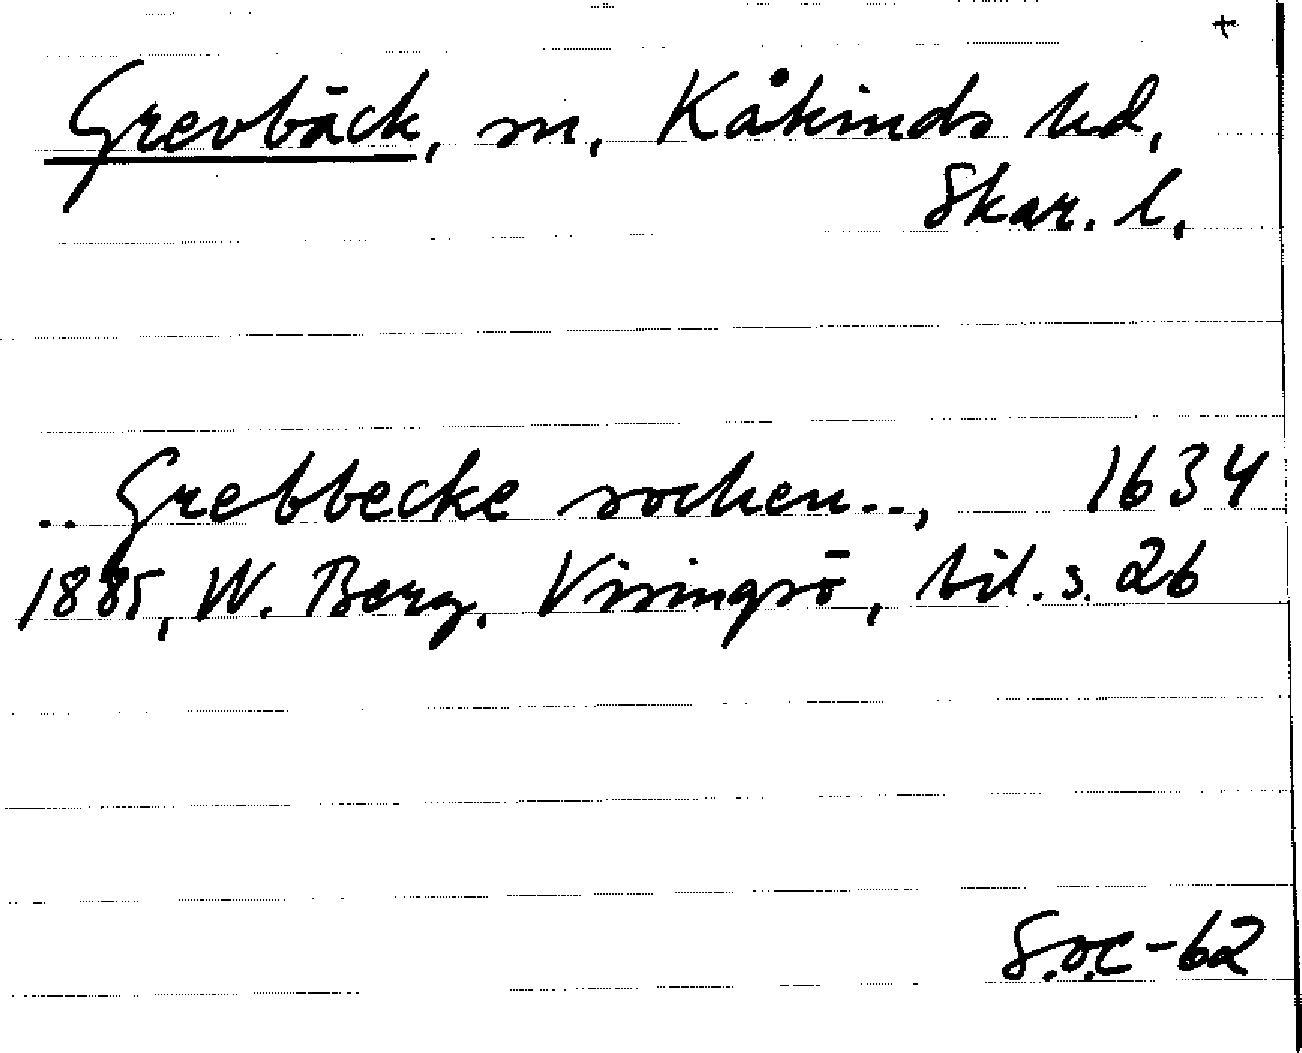 +
Grevbäck, sn, Kåkinds hd,
Skar. l.
.. Grebbecke sochen..,  1634
1885, W. Berg, Visingsö, bil. s. 26
S.O.C-62